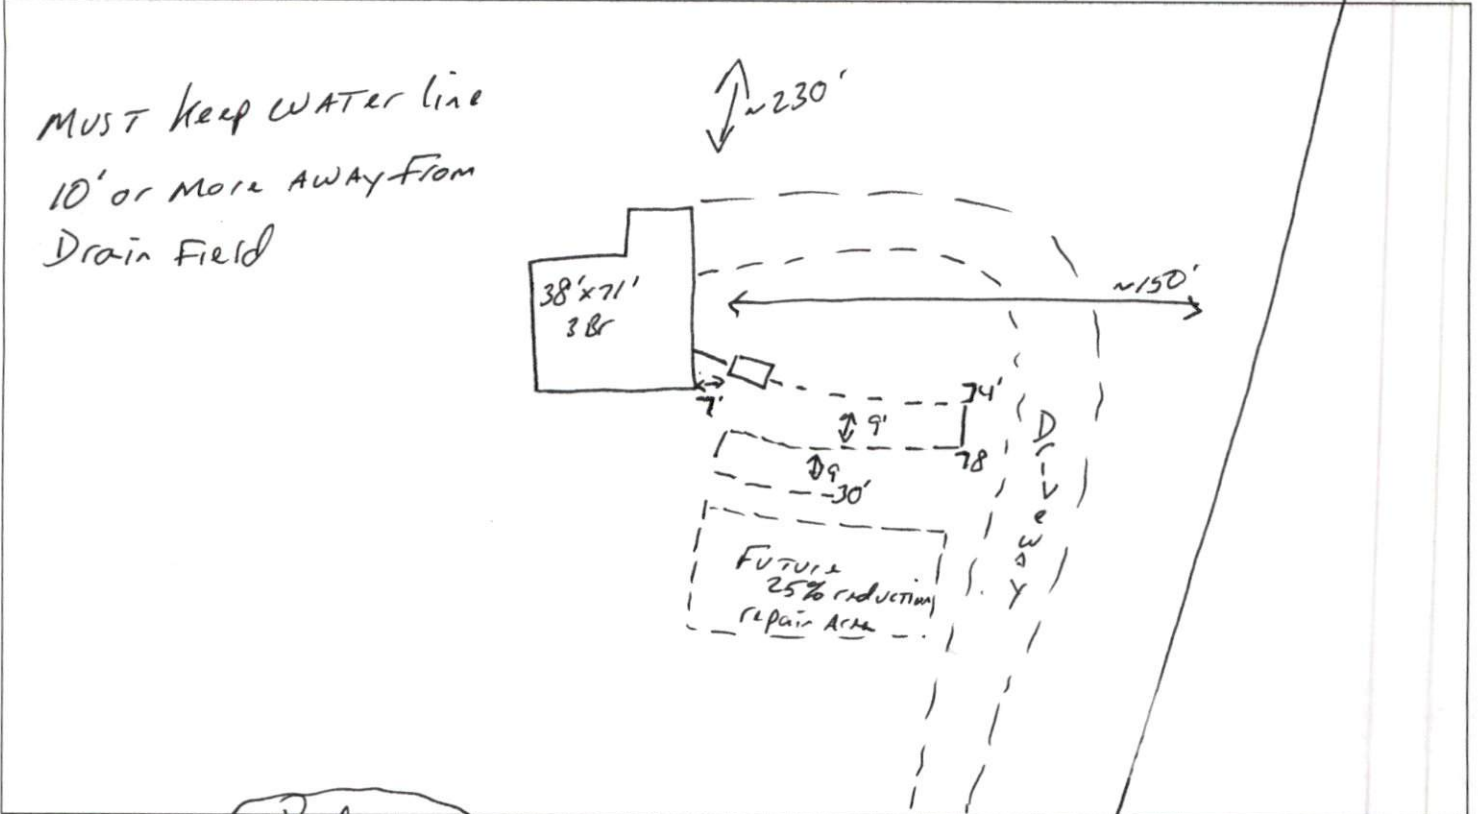 MUST Keep WATer line
10' or More AWAY From
Drain Field
~230'
38'x71'
3 Br
~150'
7'
74'
9'
78
9
30'
Driveway
Future
25% reduction
repair Area